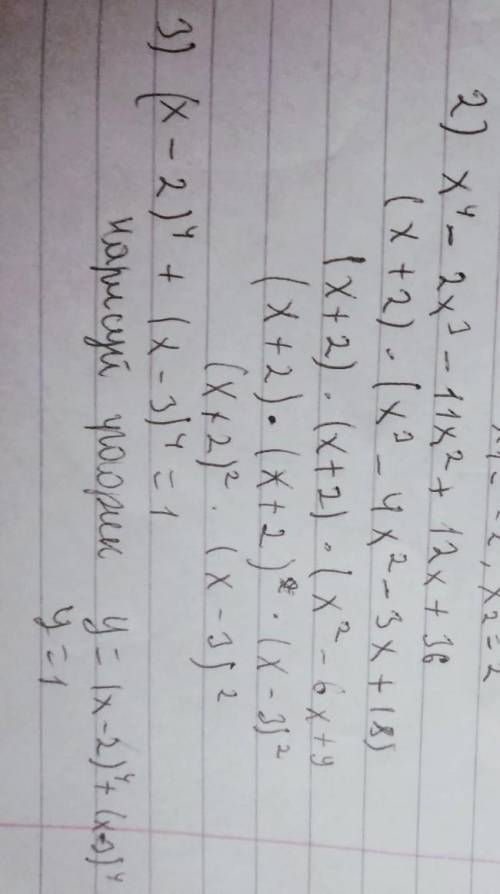 x₂ = 2
2) x⁴ - 2x³ - 11x² + 12x + 36
(x + 2) · (x³ - 4x² - 3x + 18)
(x + 2) · (x + 2) · (x² - 6x + 9
(x + 2) · (x + 2) · (x - 3)²
(x + 2)² · (x - 3)²
3) (x - 2)⁴ + (x - 3)⁴ = 1
нарисуй график y = (x - 2)⁴ + (x-3)⁴
y = 1